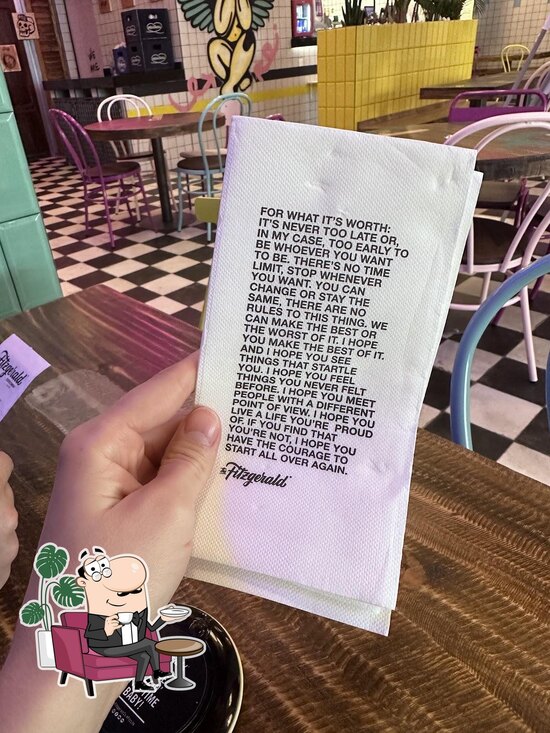 FOR WHAT IT'S WORTH:
IT'S NEVER TOO LATE OR,
IN MY CASE, TOO EARLY TO
BE WHOEVER YOU WANT
TO BE. THERE'S NO TIME
LIMIT, STOP WHENEVER
YOU WANT. YOU CAN
CHANGE OR STAY THE
SAME, THERE ARE NO
RULES TO THIS THING. WE
CAN MAKE THE BEST OR
THE WORST OF IT. I HOPE
YOU MAKE THE BEST OF IT.
AND I HOPE YOU SEE
THINGS THAT STARTLE
YOU. I HOPE YOU FEEL
THINGS YOU NEVER FELT
BEFORE. I HOPE YOU MEET
PEOPLE WITH A DIFFERENT
POINT OF VIEW. I HOPE YOU
LIVE A LIFE YOU'RE PROUD
OF. IF YOU FIND THAT
YOU'RE NOT, I HOPE YOU
HAVE THE COURAGE TO
START ALL OVER AGAIN.
The Fitzgerald
Fitzgerald
BABY!